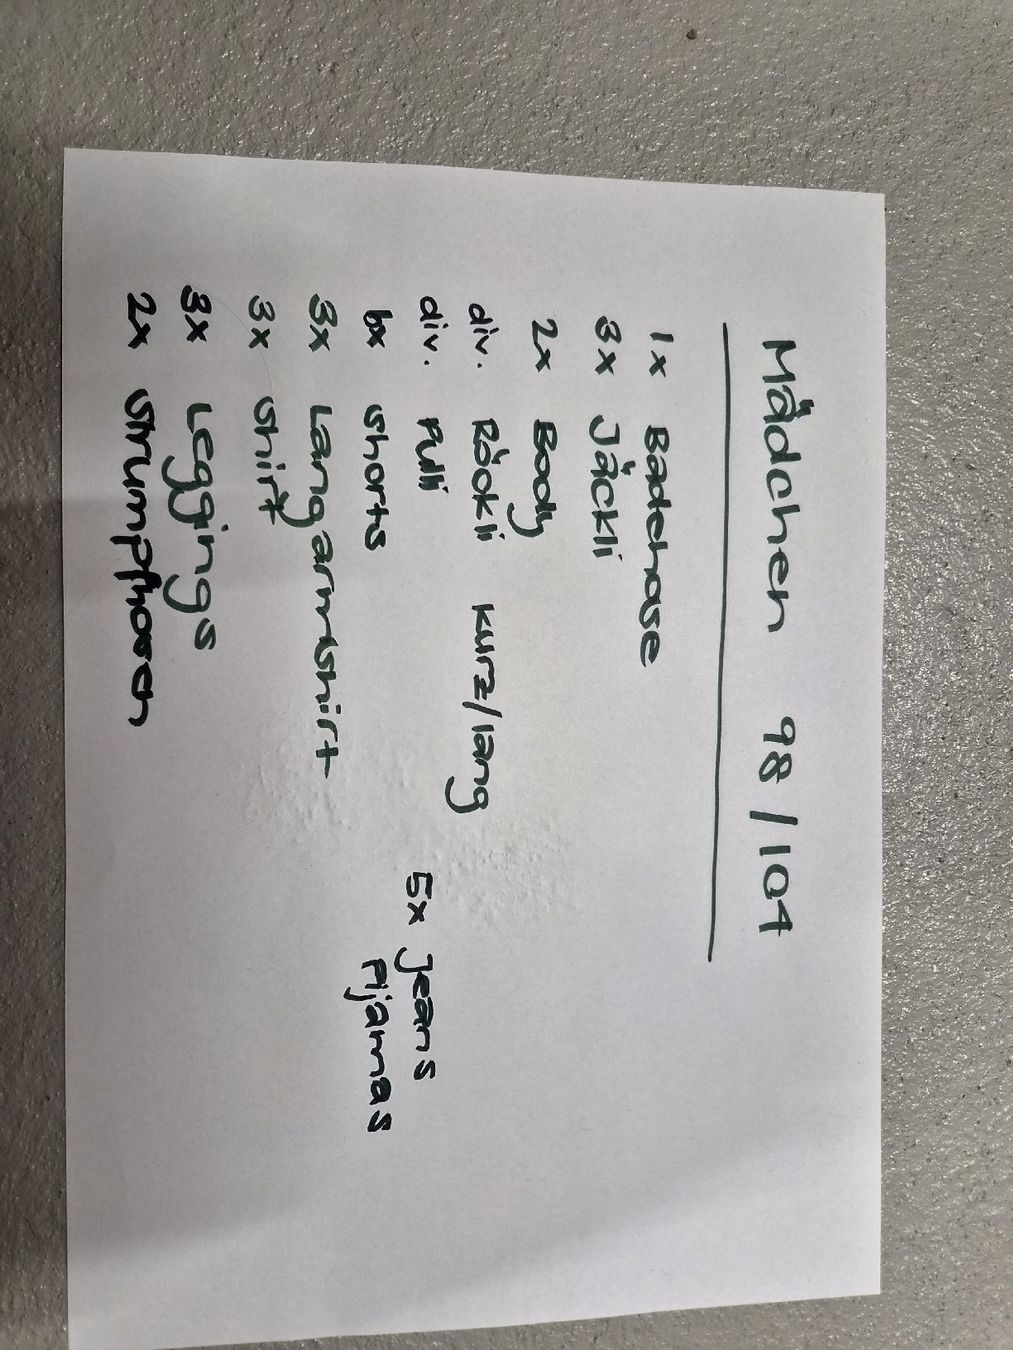 Mädchen 98/104
1x Badehose
3x Jäckli
2x Body
div. Röckli kurz/lang
div. Pulli
6x Shorts
3x Langarmshirt
3x Shirt
3x Leggings
2x Strumpfhosen
5x Jeans
Pijamas